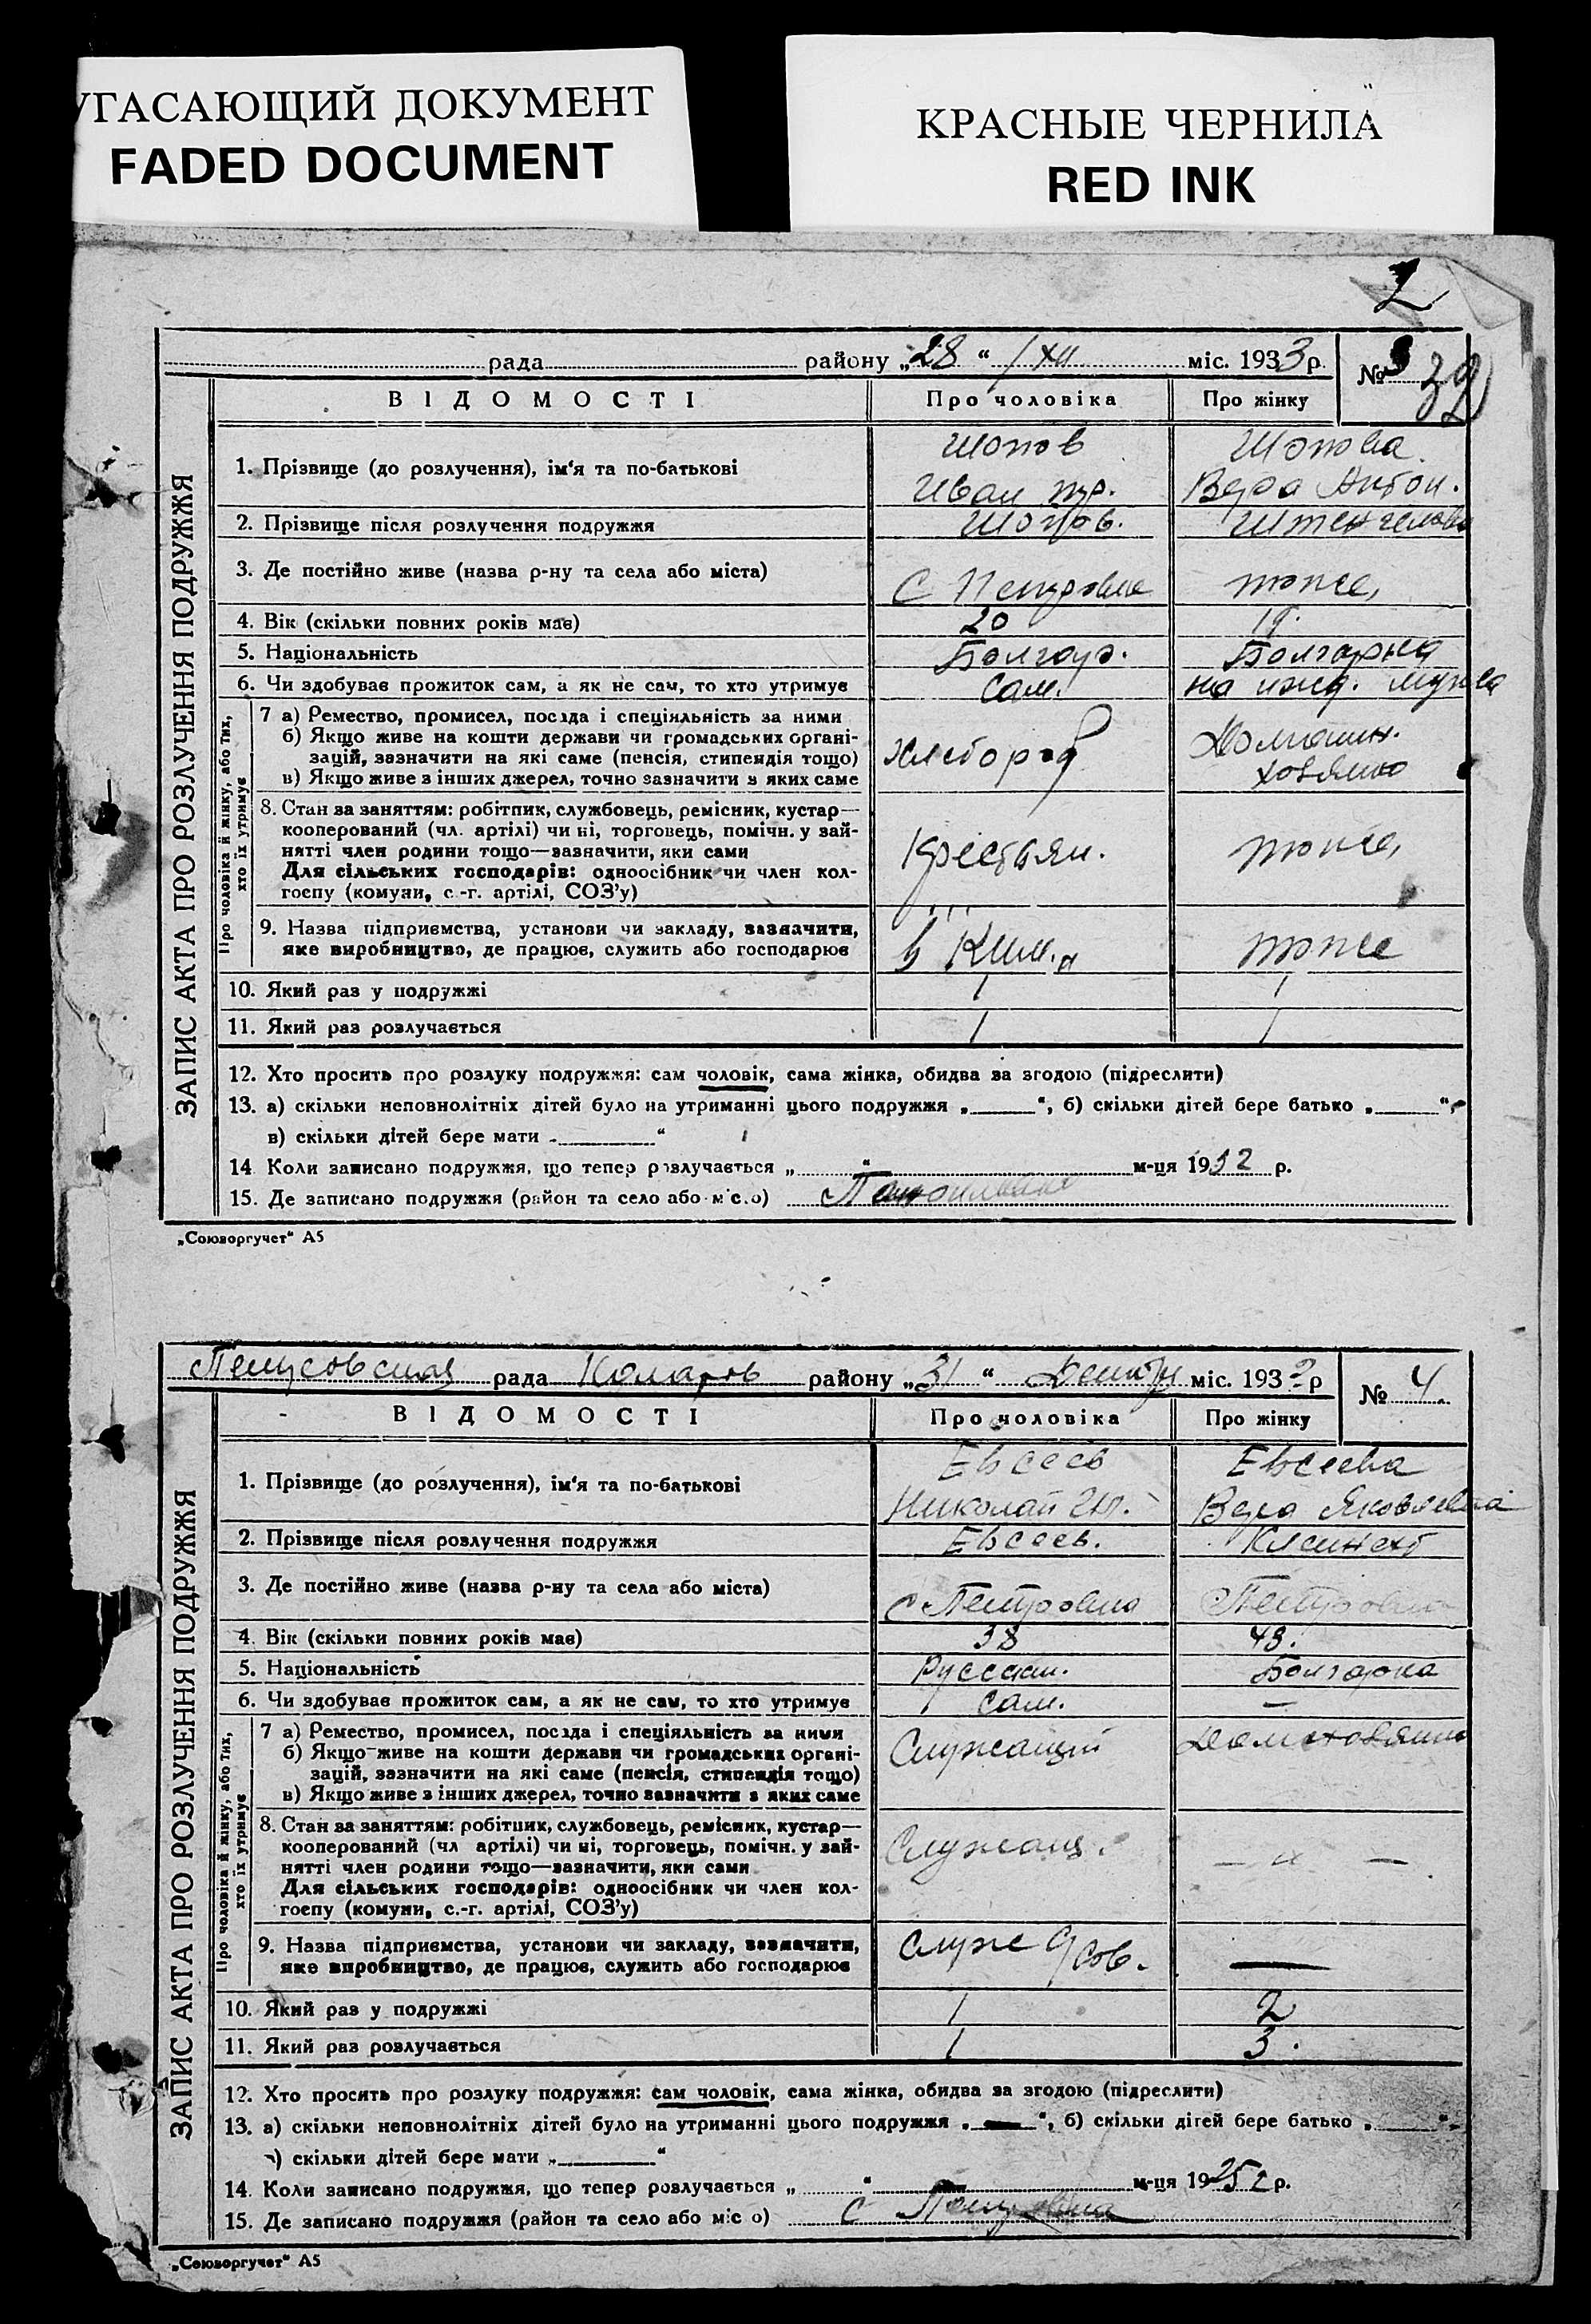 УГАСАЮЩИЙ ДОКУМЕНТ
FADED DOCUMENT
КРАСНЫЕ ЧЕРНИЛА
RED INK
2
рада району „28“ /XII міс. 1933 р. №
ВІДОМОСТІ Про чоловіка Про жінку
ЗАПИС АКТА ПРО РОЗЛУЧЕННЯ ПОДРУЖЖЯ
1. Прізвище (до розлучення), ім'я та по-батькові Шопов Шопова
Иван Вера Антон.
2. Прізвище після розлучення подружжя Шопов.
3. Де постійно живе (назва р-ну та села або міста) С Петровка тоже,
4. Вік (скільки повних років має) 20 19.
5. Національність Болгар. Болгарка
6. Чи здобував прожиток сам, а як не сам, то хто утримує сам. на ижд. мужа
Про чоловіка й жінку, або тих, хто їх утримує
7 а) Ремество, промисел, посада і спеціяльність за ними
б) Якщо живе на кошти держави чи громадських органі-
зацій, зазначити на які саме (пенсія, стипендія тощо) хлебороб Домашн.
в) Якщо живе з інших джерел, точно зазначити з яких саме хозяйка
8. Стан за заняттям: робітник, службовець, ремісник, кустар—
кооперований (чл. артілі) чи ні, торговець, помічн. у зай-
нятті член родини тощо—зазначити, яки сами Крестьян. тоже,
Для сільських господарів: одноосібник чи член кол-
госпу (комуни, с.-г. артілі, СОЗ'у)
9. Назва підприємства, установи чи закладу, зазначити,
яке виробництво, де працює, служить або господарює тоже
10. Який раз у подружжі 1 1
11. Який раз розлучається 1 1
12. Хто просить про розлуку подружжя: сам чоловік, сама жінка, обидва за згодою (підреслити)
13. а) скільки неповнолітніх дітей було на утриманні цього подружжя „ “, б) скільки дітей бере батько „ “,
в) скільки дітей бере мати „ “
14. Коли записано подружжя, що тепер розлучається „ “ м-ця 1932 р.
15. Де записано подружжя (район та село або місто)
„Союзоргучет“ А5
рада Коларов району „31“ міс. 193 р № 4.
ВІДОМОСТІ Про чоловіка Про жінку
ЗАПИС АКТА ПРО РОЗЛУЧЕННЯ ПОДРУЖЖЯ
1. Прізвище (до розлучення), ім'я та по-батькові Евсеев Евсеева
Николай Вера Яковлевна
2. Прізвище після розлучення подружжя Евсеев.
3. Де постійно живе (назва р-ну та села або міста) с Петровка с Петровка
4. Вік (скільки повних років має) 38 43.
5. Національність Русский. Болгарка
6. Чи здобував прожиток сам, а як не сам, то хто утримує сам. —
Про чоловіка й жінку, або тих, хто їх утримує
7 а) Ремество, промисел, посада і спеціяльність за ними
б) Якщо живе на кошти держави чи громадських органі- Служащий Домохозяйка
зацій, зазначити на які саме (пенсія, стипендія тощо)
в) Якщо живе з інших джерел, точно зазначити з яких саме
8. Стан за заняттям: робітник, службовець, ремісник, кустар—
кооперований (чл. артілі) чи ні, торговець, помічн. у зай- Служащ.
нятті член родини тощо—зазначити, яки сами — „ —
Для сільських господарів: одноосібник чи член кол-
госпу (комуни, с.-г. артілі, СОЗ'у)
9. Назва підприємства, установи чи закладу, зазначити,
яке виробництво, де працює, служить або господарює —
10. Який раз у подружжі 1 2
11. Який раз розлучається 1 3.
12. Хто просить про розлуку подружжя: сам чоловік, сама жінка, обидва за згодою (підреслити)
13. а) скільки неповнолітніх дітей було на утриманні цього подружжя „—“, б) скільки дітей бере батько „ “
в) скільки дітей бере мати „ “
14. Коли записано подружжя, що тепер розлучається „ “ м-ця 19 р.
15. Де записано подружжя (район та село або місто) с Петровка
„Союзоргучет“ А5